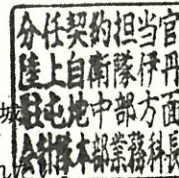 分任契約担当官
陸上自衛隊伊丹
駐屯地中部方面
会計隊本部業務科長
城
れ